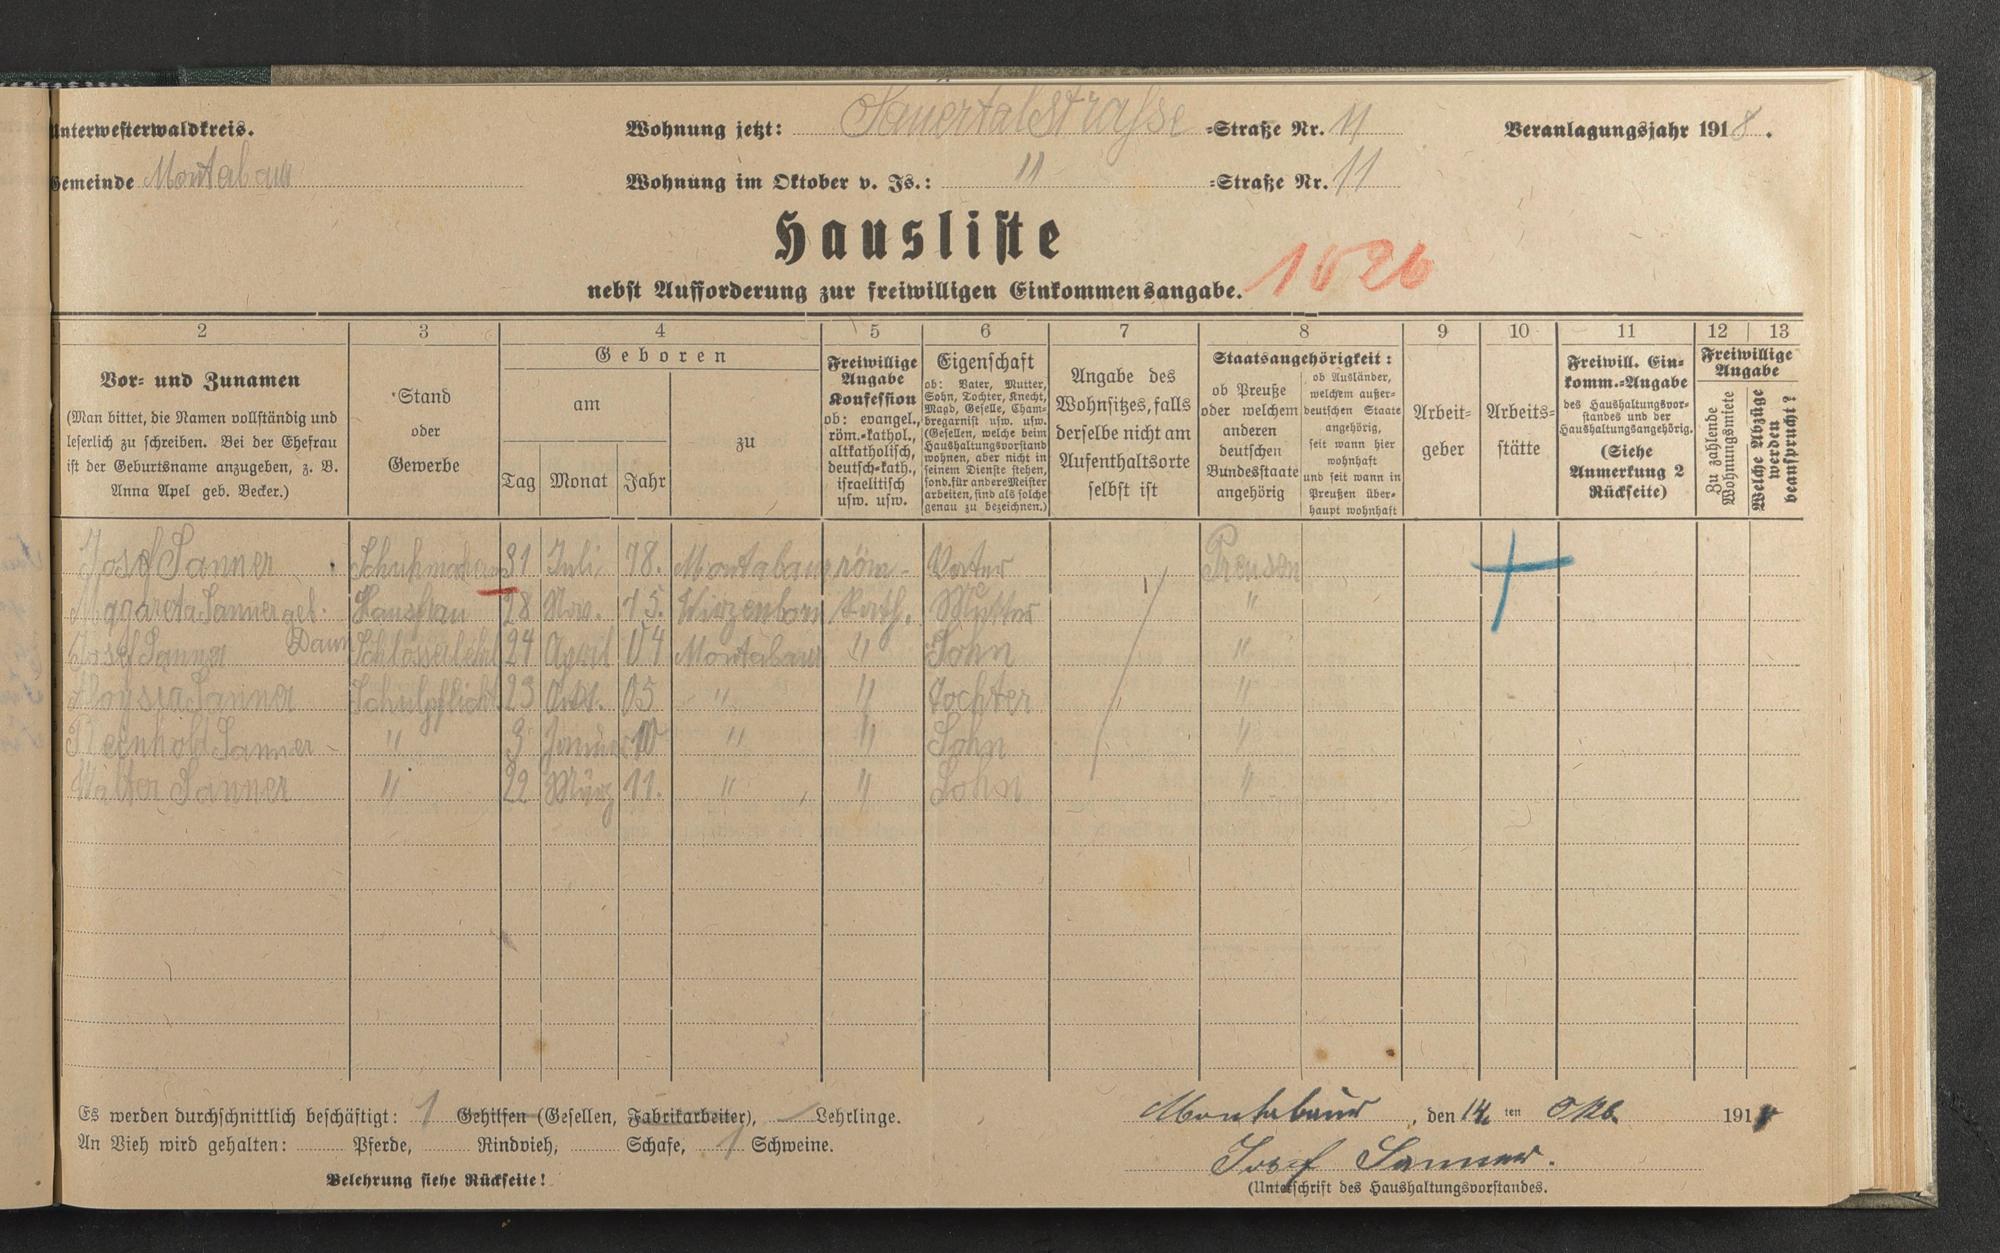 Unterwesterwaldkreis.
Wohnung jetzt: Sauertalstraße =Straße Nr. 11
Veranlagungsjahr 1918.
Gemeinde Montabaur
Wohnung im Oktober v. Js.: " =Straße Nr. 11
Hausliste
nebst Aufforderung zur freiwilligen Einkommensangabe.
1626
2 3 4 5 6 7 8 9 10 11 12 13
Vor- und Zunamen
(Man bittet, die Namen vollständig und
leserlich zu schreiben. Bei der Ehefrau
ist der Geburtsname anzugeben, z. B.
Anna Apel geb. Becker.)
Stand
oder
Gewerbe
Geboren
am
Tag Monat Jahr
zu
Freiwillige
Angabe
Konfession
ob: evangel.,
röm.-kathol.,
altkatholisch,
deutsch-kath.,
israelitisch
usw. usw.
Eigenschaft
ob: Vater, Mutter,
Sohn, Tochter, Knecht,
Magd, Geselle, Cham-
bregarnist usw. usw.
(Gesellen, welche beim
Haushaltungsvorstand
wohnen, aber nicht in
seinem Dienste stehen,
sond. für andere Meister
arbeiten, sind als solche
genau zu bezeichnen.)
Angabe des
Wohnsitzes, falls
derselbe nicht am
Aufenthaltsorte
selbst ist
Staatsangehörigkeit:
ob Preuße
oder welchem
anderen
deutschen
Bundesstaate
angehörig
ob Ausländer,
welchem außer-
deutschen Staate
angehörig,
seit wann hier
wohnhaft
und seit wann in
Preußen über-
haupt wohnhaft
Arbeit-
geber
Arbeits-
stätte
Freiwill. Ein-
komm.-Angabe
des Haushaltungsvor-
standes und der
Haushaltungsangehörig.
(Siehe
Anmerkung 2
Rückseite)
Freiwillige
Angabe
Zu zahlende
Wohnungsmiete
Welche Abzüge
werden
beansprucht?
Josef Sanner Schuhmacher 31 Juli 78. Montabaur röm- Vater Preusen
Magareta Sanner geb. Hausfrau 28 Nov. 75. Wirzenborn Kath. Mutter "
Daum
Josef Sanner Schlosserlehrl 24 April 04 Montabaur " Sohn "
Aloysia Sanner Schulpflicht 23 Okt. 05 " " Tochter "
Reenhold Sanner " 3 Januar 10 " " Sohn "
Walter Sanner " 22 März 11. " " Sohn "
Es werden durchschnittlich beschäftigt: 1 Gehilfen (Gesellen, Fabrikarbeiter), Lehrlinge.
An Vieh wird gehalten: Pferde, Rindvieh, Schafe, 1 Schweine.
Belehrung siehe Rückseite!
Montabaur, den 14ten Okb. 191
Josef Sanner.
(Unterschrift des Haushaltungsvorstandes.